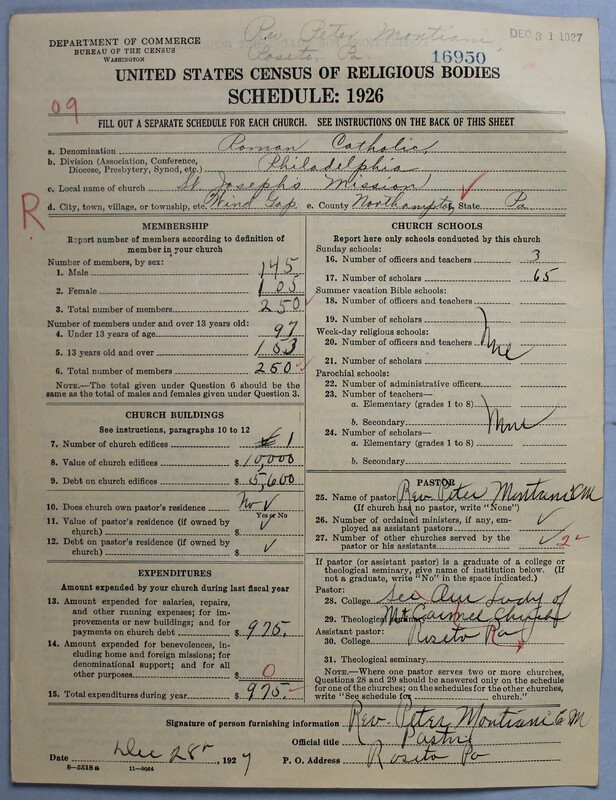 Rev Peter Montiani,
Roseto, Pa
DEC 31 1927
DEPARTMENT OF COMMERCE
BUREAU OF THE CENSUS
WASHINGTON
16950
UNITED STATES CENSUS OF RELIGIOUS BODIES
SCHEDULE: 1926
09
FILL OUT A SEPARATE SCHEDULE FOR EACH CHURCH. SEE INSTRUCTIONS ON THE BACK OF THIS SHEET
a. Denomination Roman Catholic
b. Division (Association, Conference,
Diocese, Presbytery, Synod, etc.) Philadelphia
c. Local name of church St Joseph's Mission
R
d. City, town, village, or township, etc. Wind Gap e. County Northampton State Pa
MEMBERSHIP
Report number of members according to definition of
member in your church
Number of members, by sex:
1. Male 145
2. Female 105
3. Total number of members 250
Number of members under and over 13 years old:
4. Under 13 years of age 97
5. 13 years old and over 153
6. Total number of members 250
NOTE.—The total given under Question 6 should be the
same as the total of males and females given under Question 3.
CHURCH BUILDINGS
See instructions, paragraphs 10 to 12
7. Number of church edifices 1
8. Value of church edifices $ 10,000
9. Debt on church edifices $ 5,600
10. Does church own pastor's residence No
Yes or No
11. Value of pastor's residence (if owned by
church) $
12. Debt on pastor's residence (if owned by
church) $
EXPENDITURES
Amount expended by your church during last fiscal year
13. Amount expended for salaries, repairs,
and other running expenses; for im-
provements or new buildings; and for
payments on church debt $ 975.
14. Amount expended for benevolences,
including home and foreign missions; for
denominational support; and for all
other purposes $ 0
15. Total expenditures during year $ 975
CHURCH SCHOOLS
Report here only schools conducted by this church
Sunday schools:
16. Number of officers and teachers 3
17. Number of scholars 65
Summer vacation Bible schools:
18. Number of officers and teachers
19. Number of scholars
Week-day religious schools:
20. Number of officers and teachers
21. Number of scholars
Parochial schools:
22. Number of administrative officers
23. Number of teachers—
a. Elementary (grades 1 to 8)
b. Secondary
24. Number of scholars—
a. Elementary (grades 1 to 8)
b. Secondary
PASTOR
25. Name of pastor Rev. Peter Montiani C.M
(If church has no pastor, write "None")
26. Number of ordained ministers, if any, em-
ployed as assistant pastors
27. Number of other churches served by the
pastor or his assistants 2
If pastor (or assistant pastor) is a graduate of a college or
theological seminary, give name of institution below. (If
not a graduate, write "No" in the space indicated.)
Pastor:
28. College See Our Lady of
29. Theological seminary Mt Carmel Church
Assistant pastor:
30. College Roseto Pa
31. Theological seminary
NOTE.—Where one pastor serves two or more churches,
Questions 28 and 29 should be answered only on the schedule
for one of the churches; on the schedules for the other churches,
write "See schedule for church."
Signature of person furnishing information Rev. Peter Montiani C M
Official title Pastor
Date Dec 28, 1927 P. O. Address Roseto Pa
8—5518a 11—9064